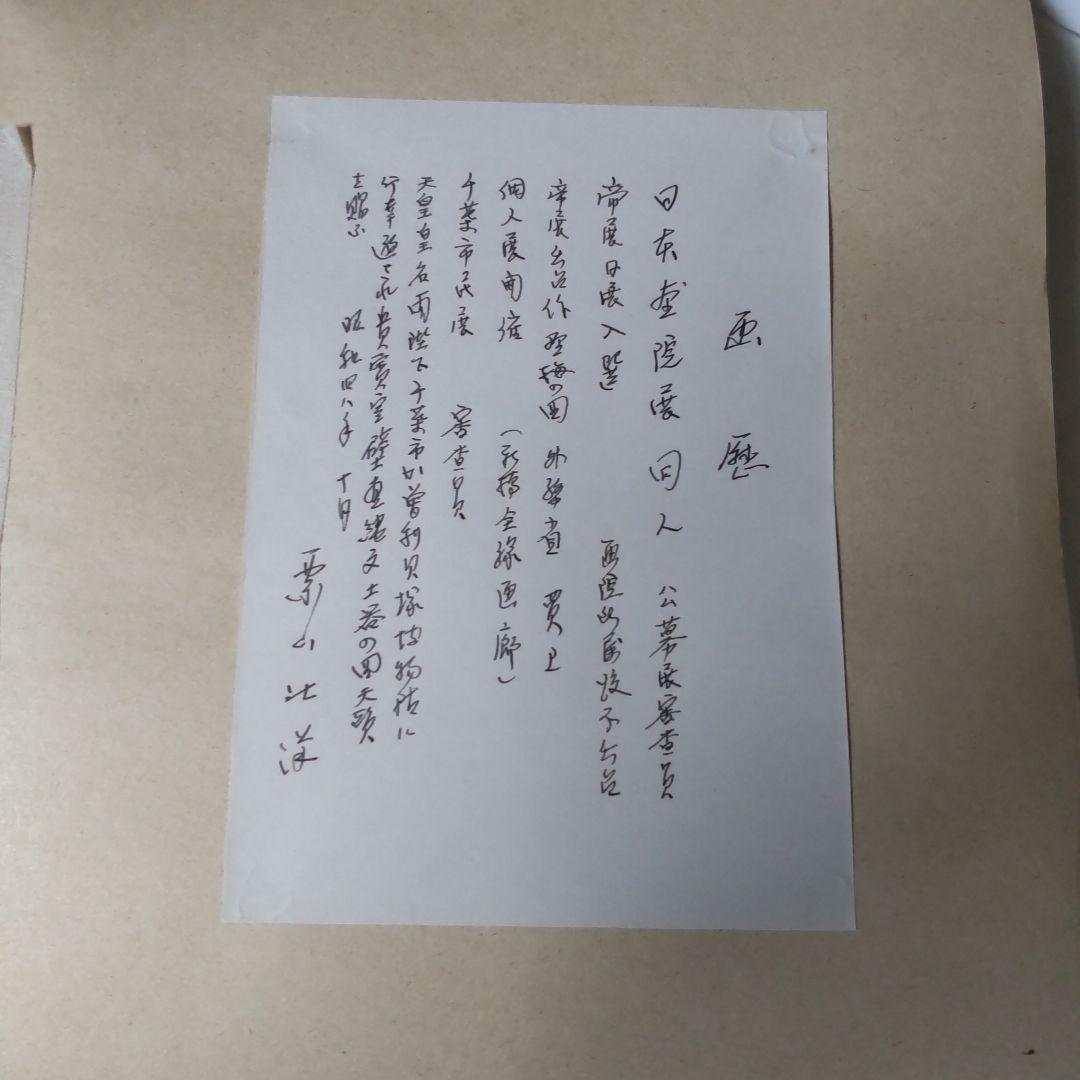 画歴
日本画院展同人 公募展審査員
帝展日展入選 画院所属後不出品
帝展出品作 野梅の図 外務省 買上
個人展開催 (新橋全線画廊)
千葉市民展 審査員
天皇皇后両陛下千葉市加曽利貝塚博物館に
行幸遊され貴賓室壁画縄文土器の図天覧
を賜る 昭和四八年 十月
粟山北洋